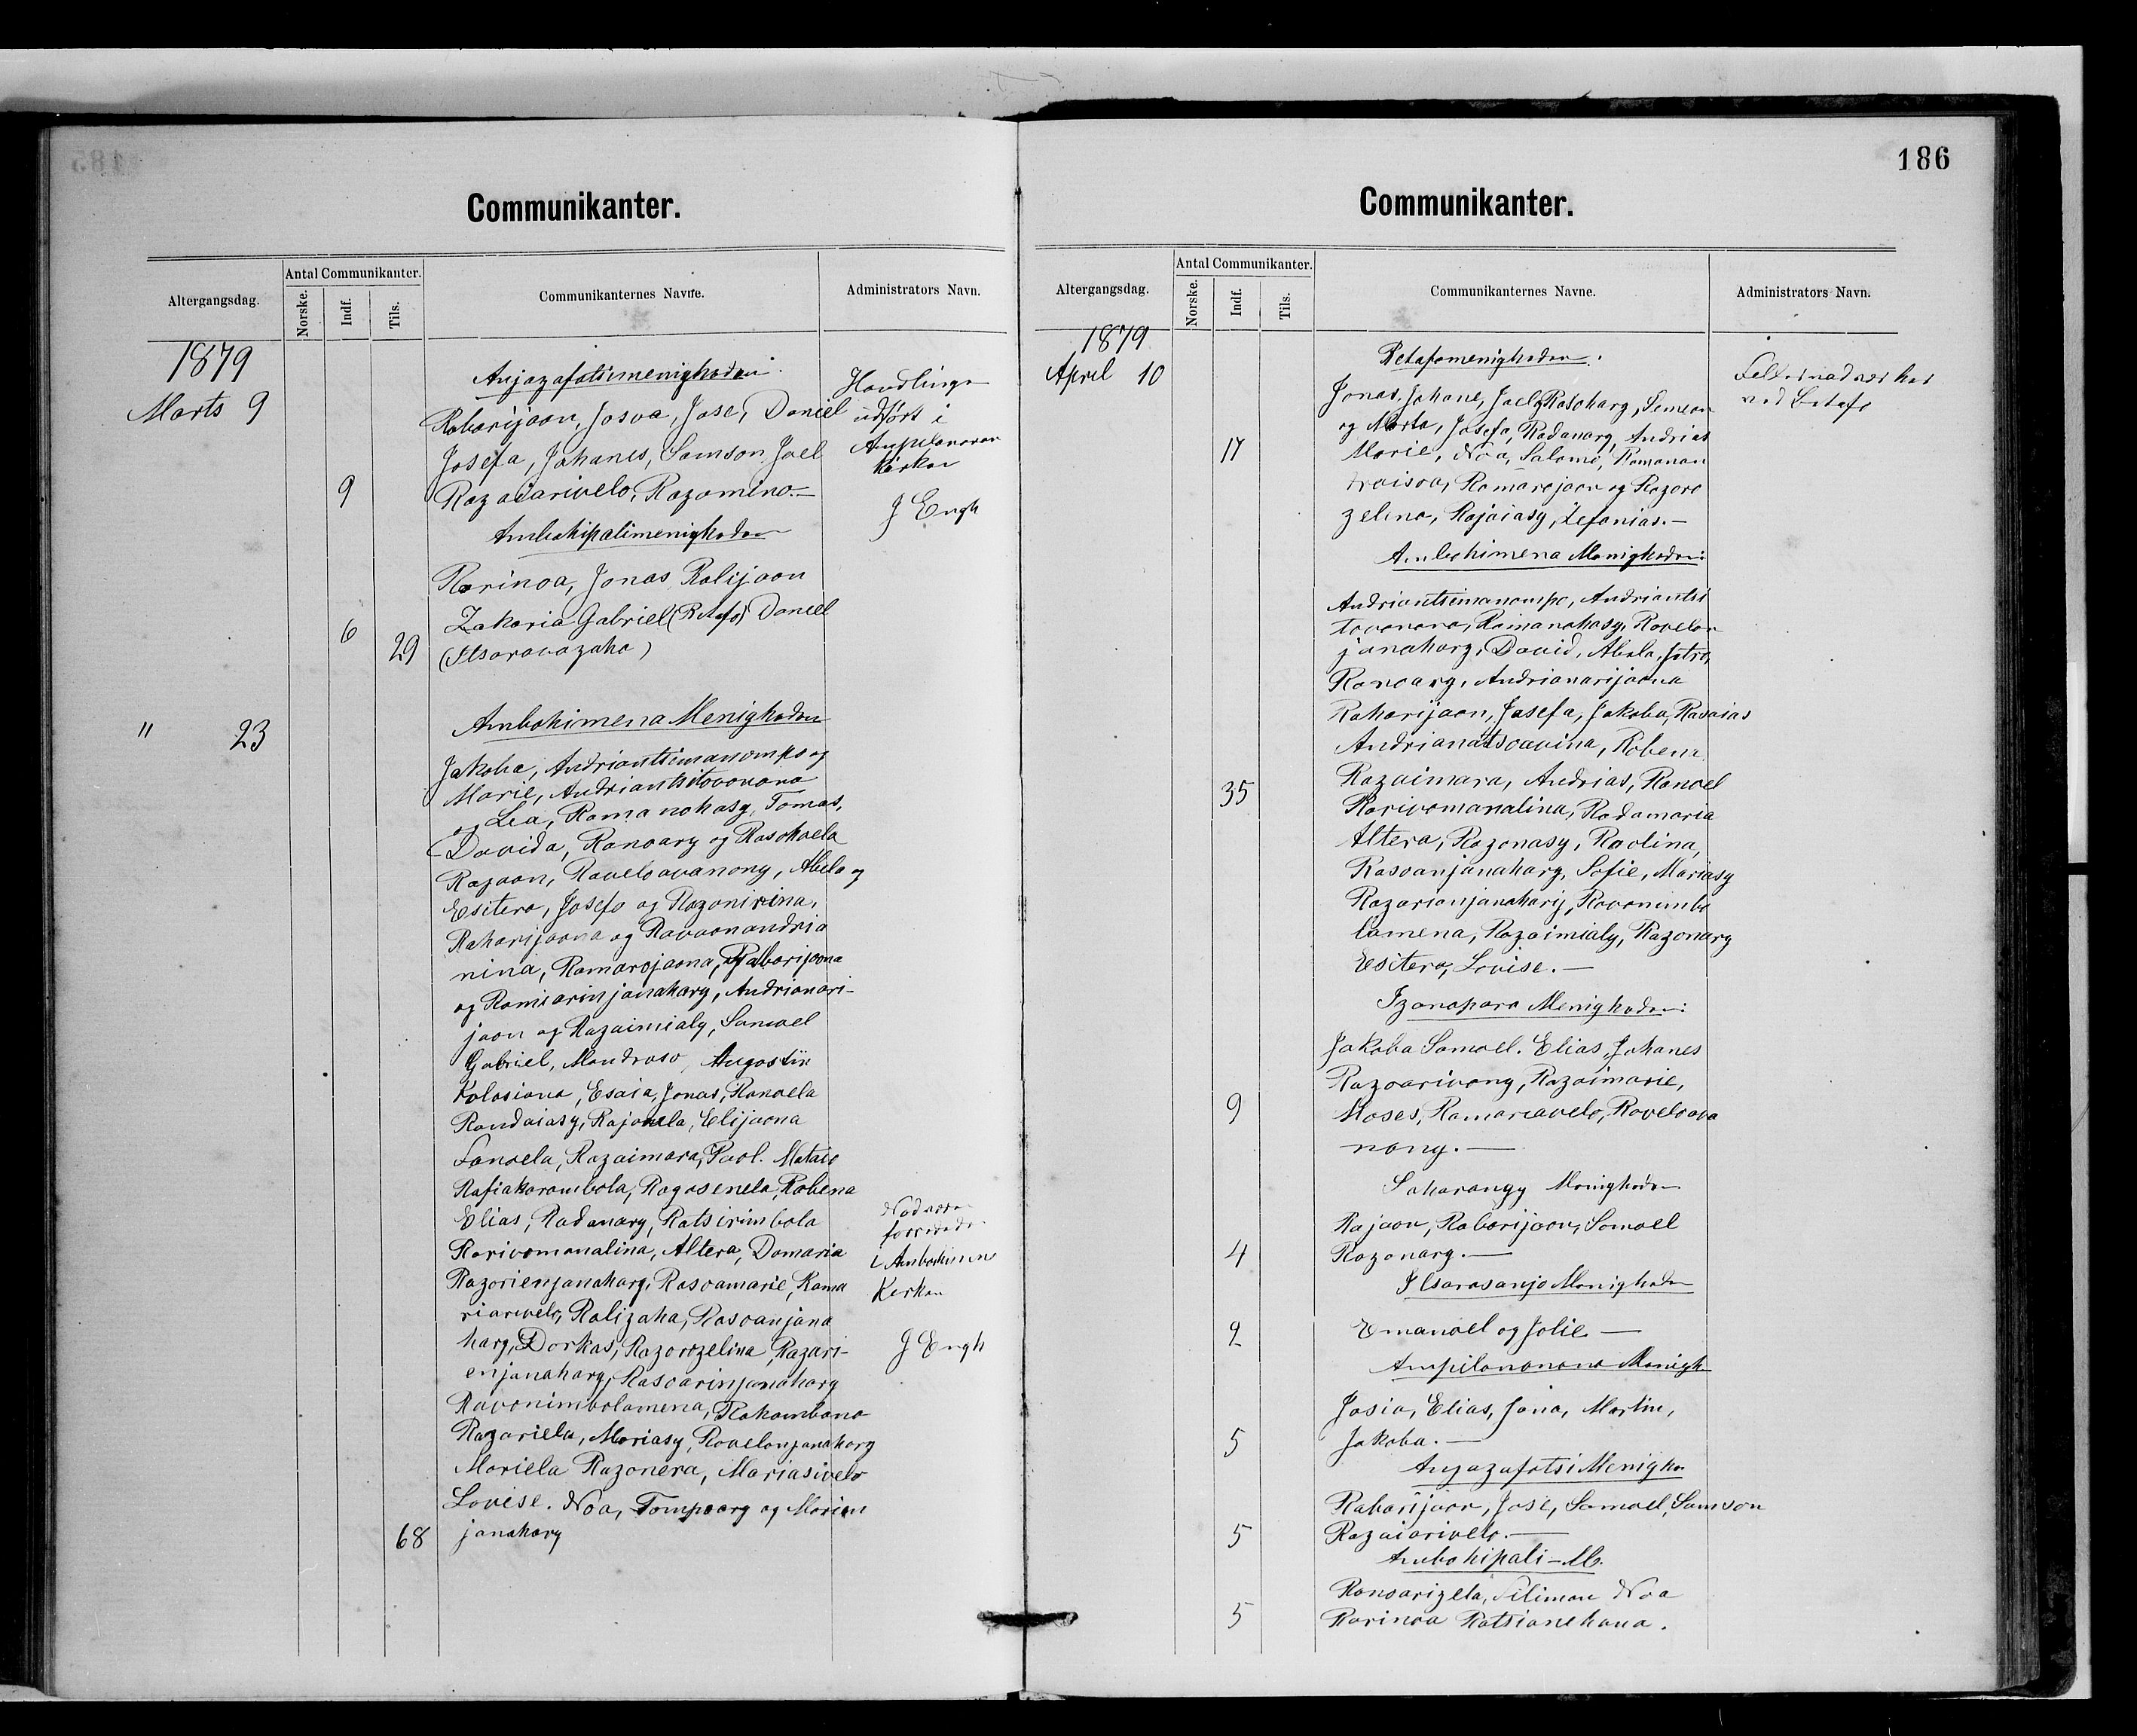 Communikanter.
Altergangsdag.
Antal Communikanter.
Norske.
Indf.
Tils.
Communikanternes Navne.
Administrators Navn.
1879
Marts 9
Anjazafotsimenigheden
Rabarijaon, Josva, Jose, Daniel
Josefa, Johanes, Samson Joel
9 Razaiarivelo, Razamino.—
Handlingen
udført i
Ampilanonan
Kirken
J Engh
Ambohipalimenigheden
Rarinoa, Jonas Ralijaon
6 Zakaria Gabriel (Betafo) Daniel
29 (Itsaravazaha)
" 23
Ambohimena Menigheden
Jakoba, Andriantsimanompo og
Marie, Andriantsitovonana
og Lea, Ramanohasy, Tomas,
Davida, Ranoary og Rasohaela
Rajaon, Raveloavanony, Abela og
Esitera, Josefa og Razanirina,
Raharijaona og Ravaonandria
nina, Ramarojaona, Rabarijaona
og Ramiarinjanahary, Andrianari-
jaon og Razaimialy, Samoel
Gabriel, Mandroso, Augostin
Kolosiana, Esaia, Jonas, Ranoela
Randaiasy, Rajoela, Elijaona
Fanoela, Razaimara, Paol. Mataio
Rafiakarambola, Ragosenela, Robena
Elias, Radanary, Ratsirimbola
Rarivomanalina, Altera, Damaria
Razorienjanahary, Rasoamarie, Rama
riarivelo, Ralizaha, Rasoanjana
hary, Dorkas, Razorozelina, Razari-
enjanahary, Rasoarinjanahary
Ravonimbolamena, Rakambana
Razariela, Mariasy, Ravelonjanahary
Mariela Razanera, Mariasivelo
Lovise. Noa, Tompoary og Marian
68 janahary
i Ambohimena
Kirken
J Engh
186
Communikanter.
Altergangsdag.
Antal Communikanter.
Norske.
Indf.
Tils.
Communikanternes Navne.
Administrators Navn.
1879
April 10
Betafomenigheden.
Jonas, Johane, Joel, Rasohary, Simeon
og Marta, Josefa, Radanary, Andrias
17 Marie, Noa, Salome, Ramanan
traisoa, Ramarojaon og Razoro
zelina, Rajaiasy, Zefanias.—
ved Betafo
Ambohimena Menigheden:
Andriantsimanompo, Andriantsi
tovonana, Ramanohasy, Ravelon
janahary, David, Abela, Jotro,
Ranoary, Andrianarijaona
Raharijaon, Josefa, Jakoba, Rasaias
Andrianatsoavina, Robena
35 Razaimara, Andrias, Ranoel
Rarivomanalina, Radamaria
Altera, Razonasy, Raolina,
Rasoanjanahary, Sofie, Mariasy
Razarianjanahary, Ravonimbo
lamena, Razaimialy, Razonary
Esitera, Lovise.—
Izanapara Menigheden:
Jakoba Samoel. Elias, Johanes
Razoarivony, Razaimarie,
9 Moses, Ramariavelo, Raveloava
nony.—
Saharangy Menigheden
Rajaon, Rabarijaon, Samoel
4 Razanary.—
Itsarasanjo Menigheden
2 Emanoel og Jolie—
Ampilanonana Menigh
Josia, Elias, Jona, Martin,
5 Jakoba.—
Anjazafotsi Menighe
Rabarijaon, Jose, Samoel, Samson
5 Razaiarivelo.—
Ambohipali-M.
Ranoarizela, Filimon Noa
5 Rarinoa Ratsianehana.